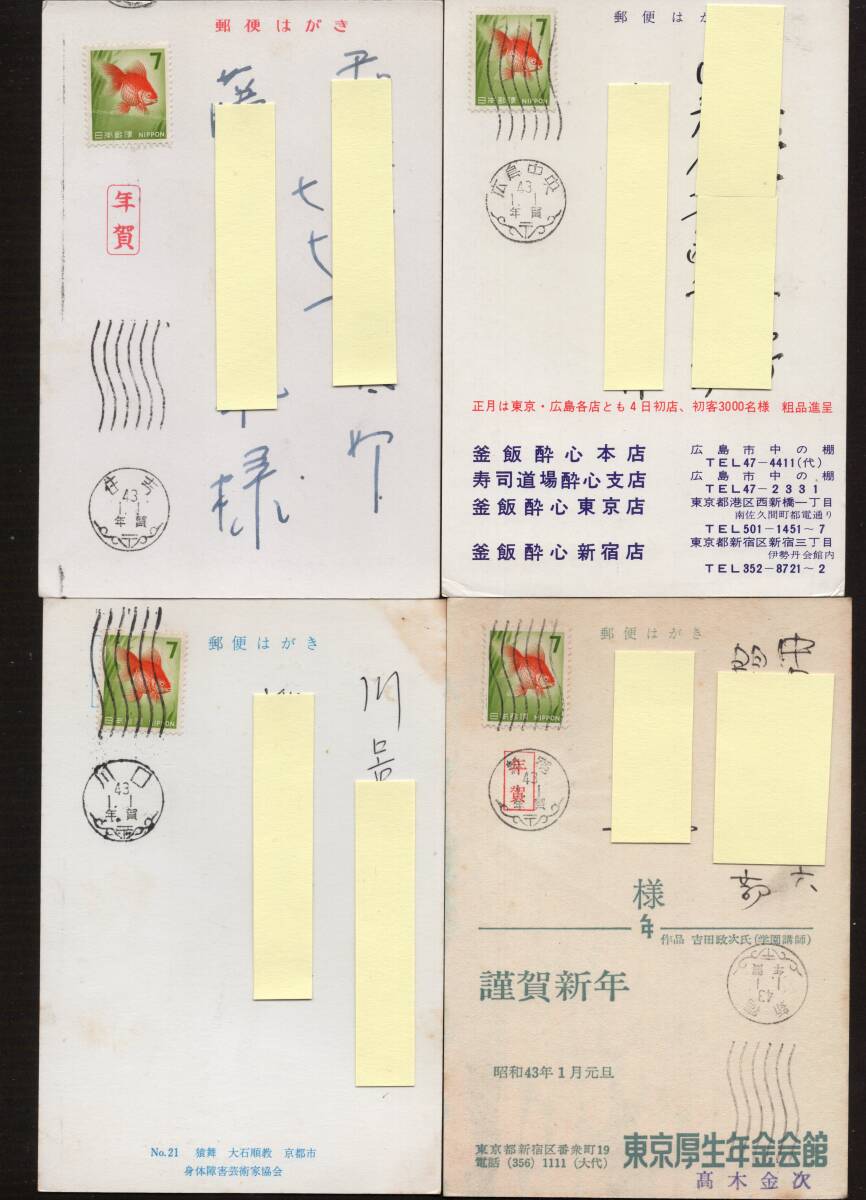 郵便はがき
7
日本郵便 NIPPON
年賀
七七一
様
住吉
43
1.1
年賀
郵便はが
7
日本郵便 NIPPON
広島中央
43
1.1
年賀
正月は東京・広島各店とも4日初店、初客3000名様 粗品進呈
釜飯酔心本店 広島市中の棚
TEL47-4411(代)
寿司道場酔心支店 広島市中の棚
TEL47-2331
釜飯酔心東京店 東京都港区西新橋一丁目
南佐久間町都電通り
TEL501-1451~7
釜飯酔心新宿店 東京都新宿区新宿三丁目
伊勢丹会館内
TEL352-8721~2
郵便はがき
7
日本郵便 NIPPON
川口
43
1.1
年賀
川
No.21 猿舞 大石順教 京都市
身体障害芸術家協会
郵便はがき
7
日本郵便 NIPPON
年賀
43
年賀
六
様
年
作品 吉田政次氏(学園講師)
新宿
43
1.1
年賀
謹賀新年
昭和43年1月元旦
東京都新宿区番衆町19
電話 (356) 1111 (大代)
東京厚生年金会館
髙木金次